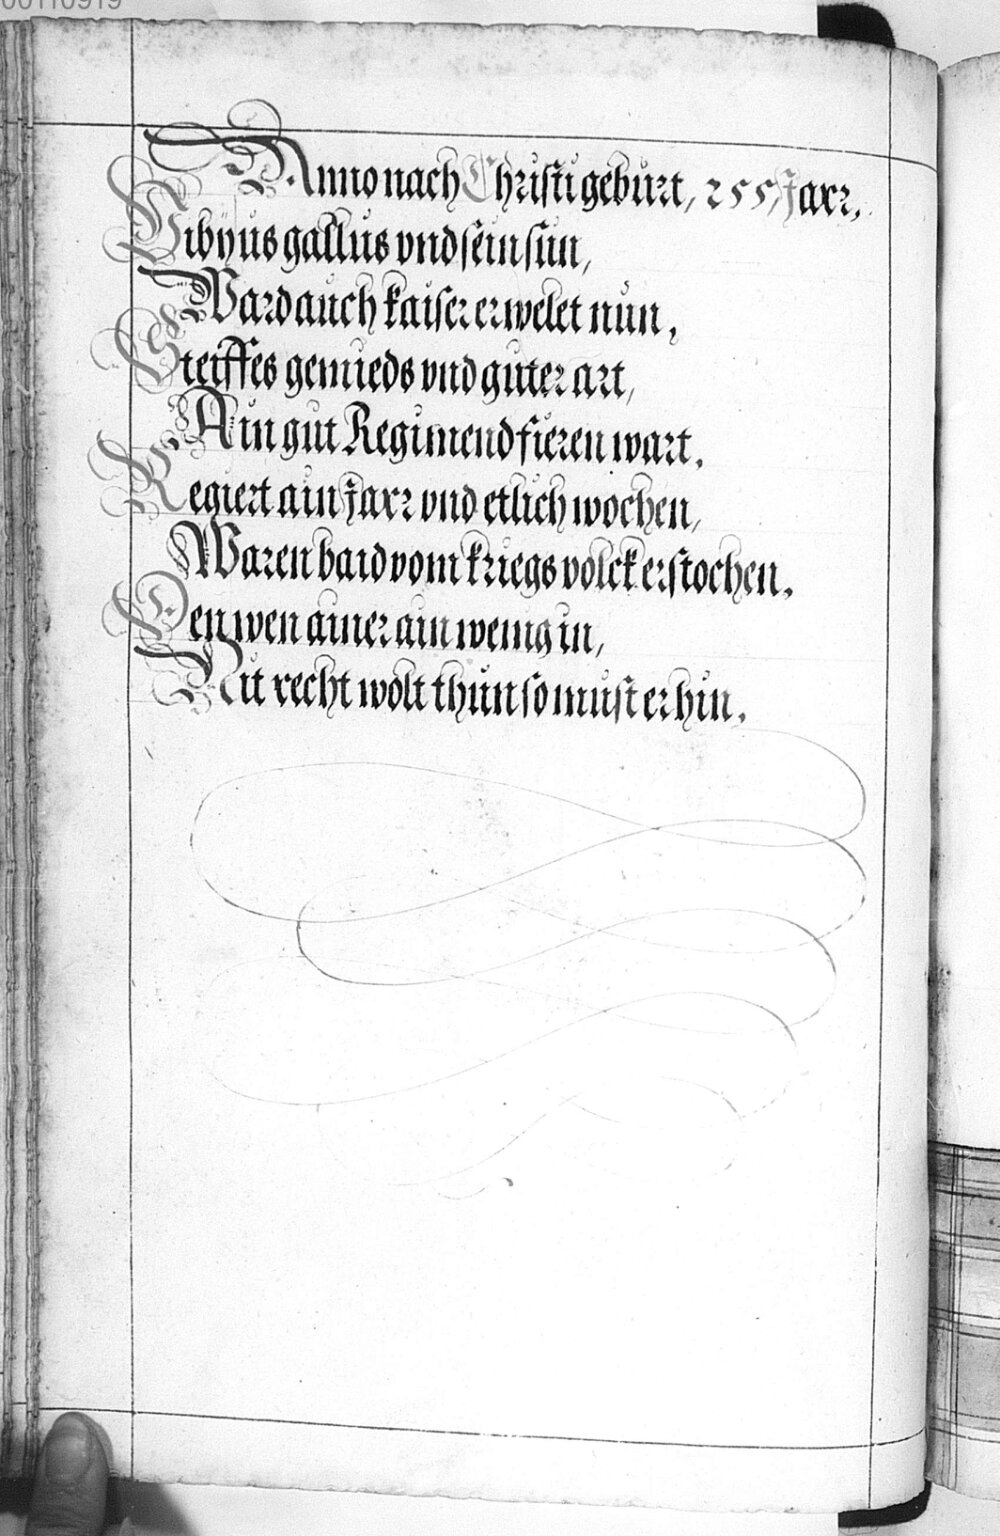 00110919
Anno nach Christi gebürt, 255, Jarr,
Vibyus gallus vnd sein sün,
Ward auch kaiser erwelet nün,
Steiffes gemieds vnd güter art,
Ain güt Regimend fieren wart.
Regiert ain Jarr vnd etlich wochen,
Waren baid vom kriegs volck erstochen.
Den wen ainer ain wenig in,
Mit recht wolt thün so müst er hin.